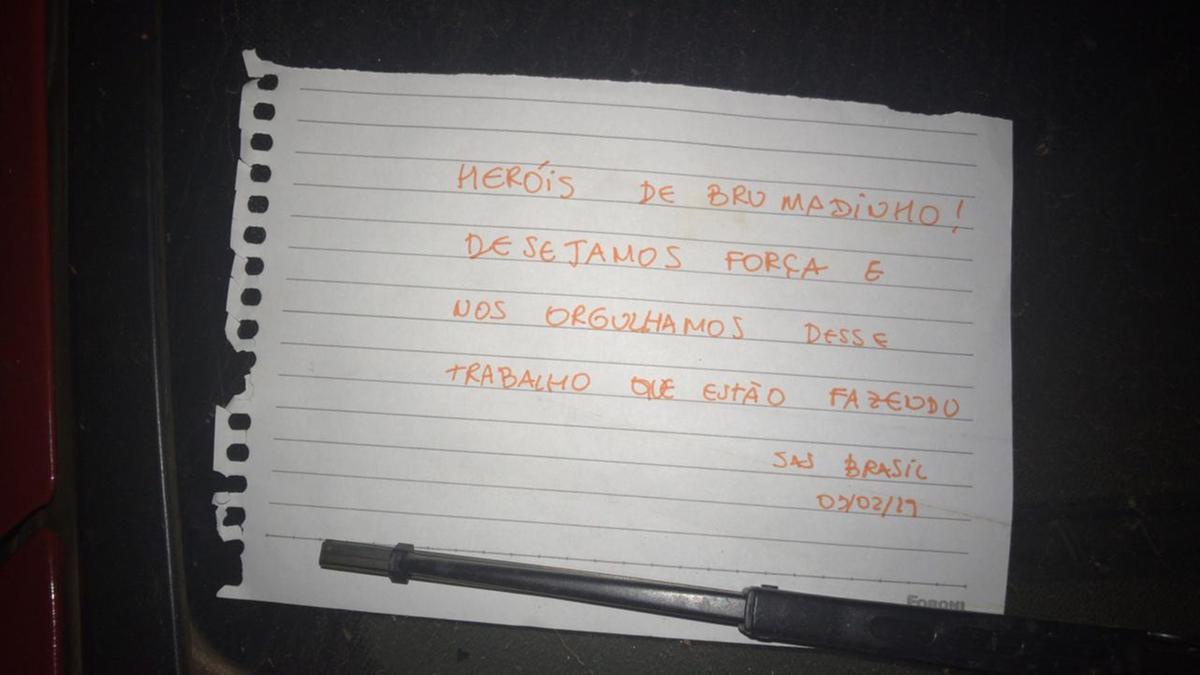 HERÓIS DE BRUMADINHO!
DESEJAMOS FORÇA E
NOS ORGULHAMOS DESSE
TRABALHO QUE ESTÃO FAZENDO
SAS BRASIL